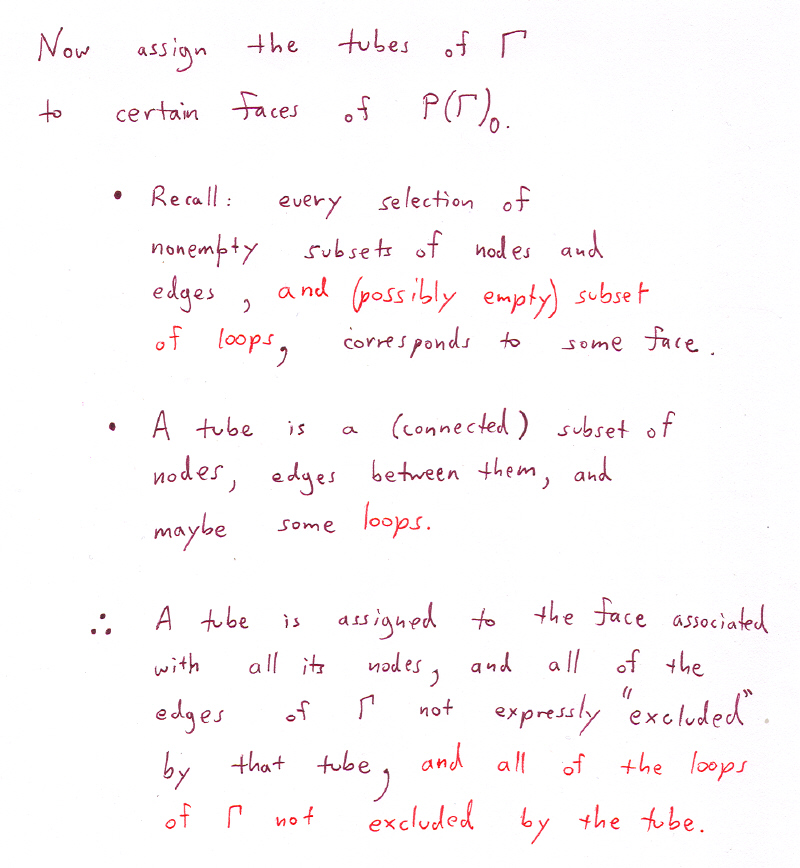 Now assign the tubes of Γ
to certain faces of P(Γ)₀.
• Recall: every selection of
nonempty subsets of nodes and
edges, and (possibly empty) subset
of loops, corresponds to some face.
• A tube is a (connected) subset of
nodes, edges between them, and
maybe some loops.
∴ A tube is assigned to the face associated
with all its nodes, and all of the
edges of Γ not expressly "excluded"
by that tube, and all of the loops
of Γ not excluded by the tube.